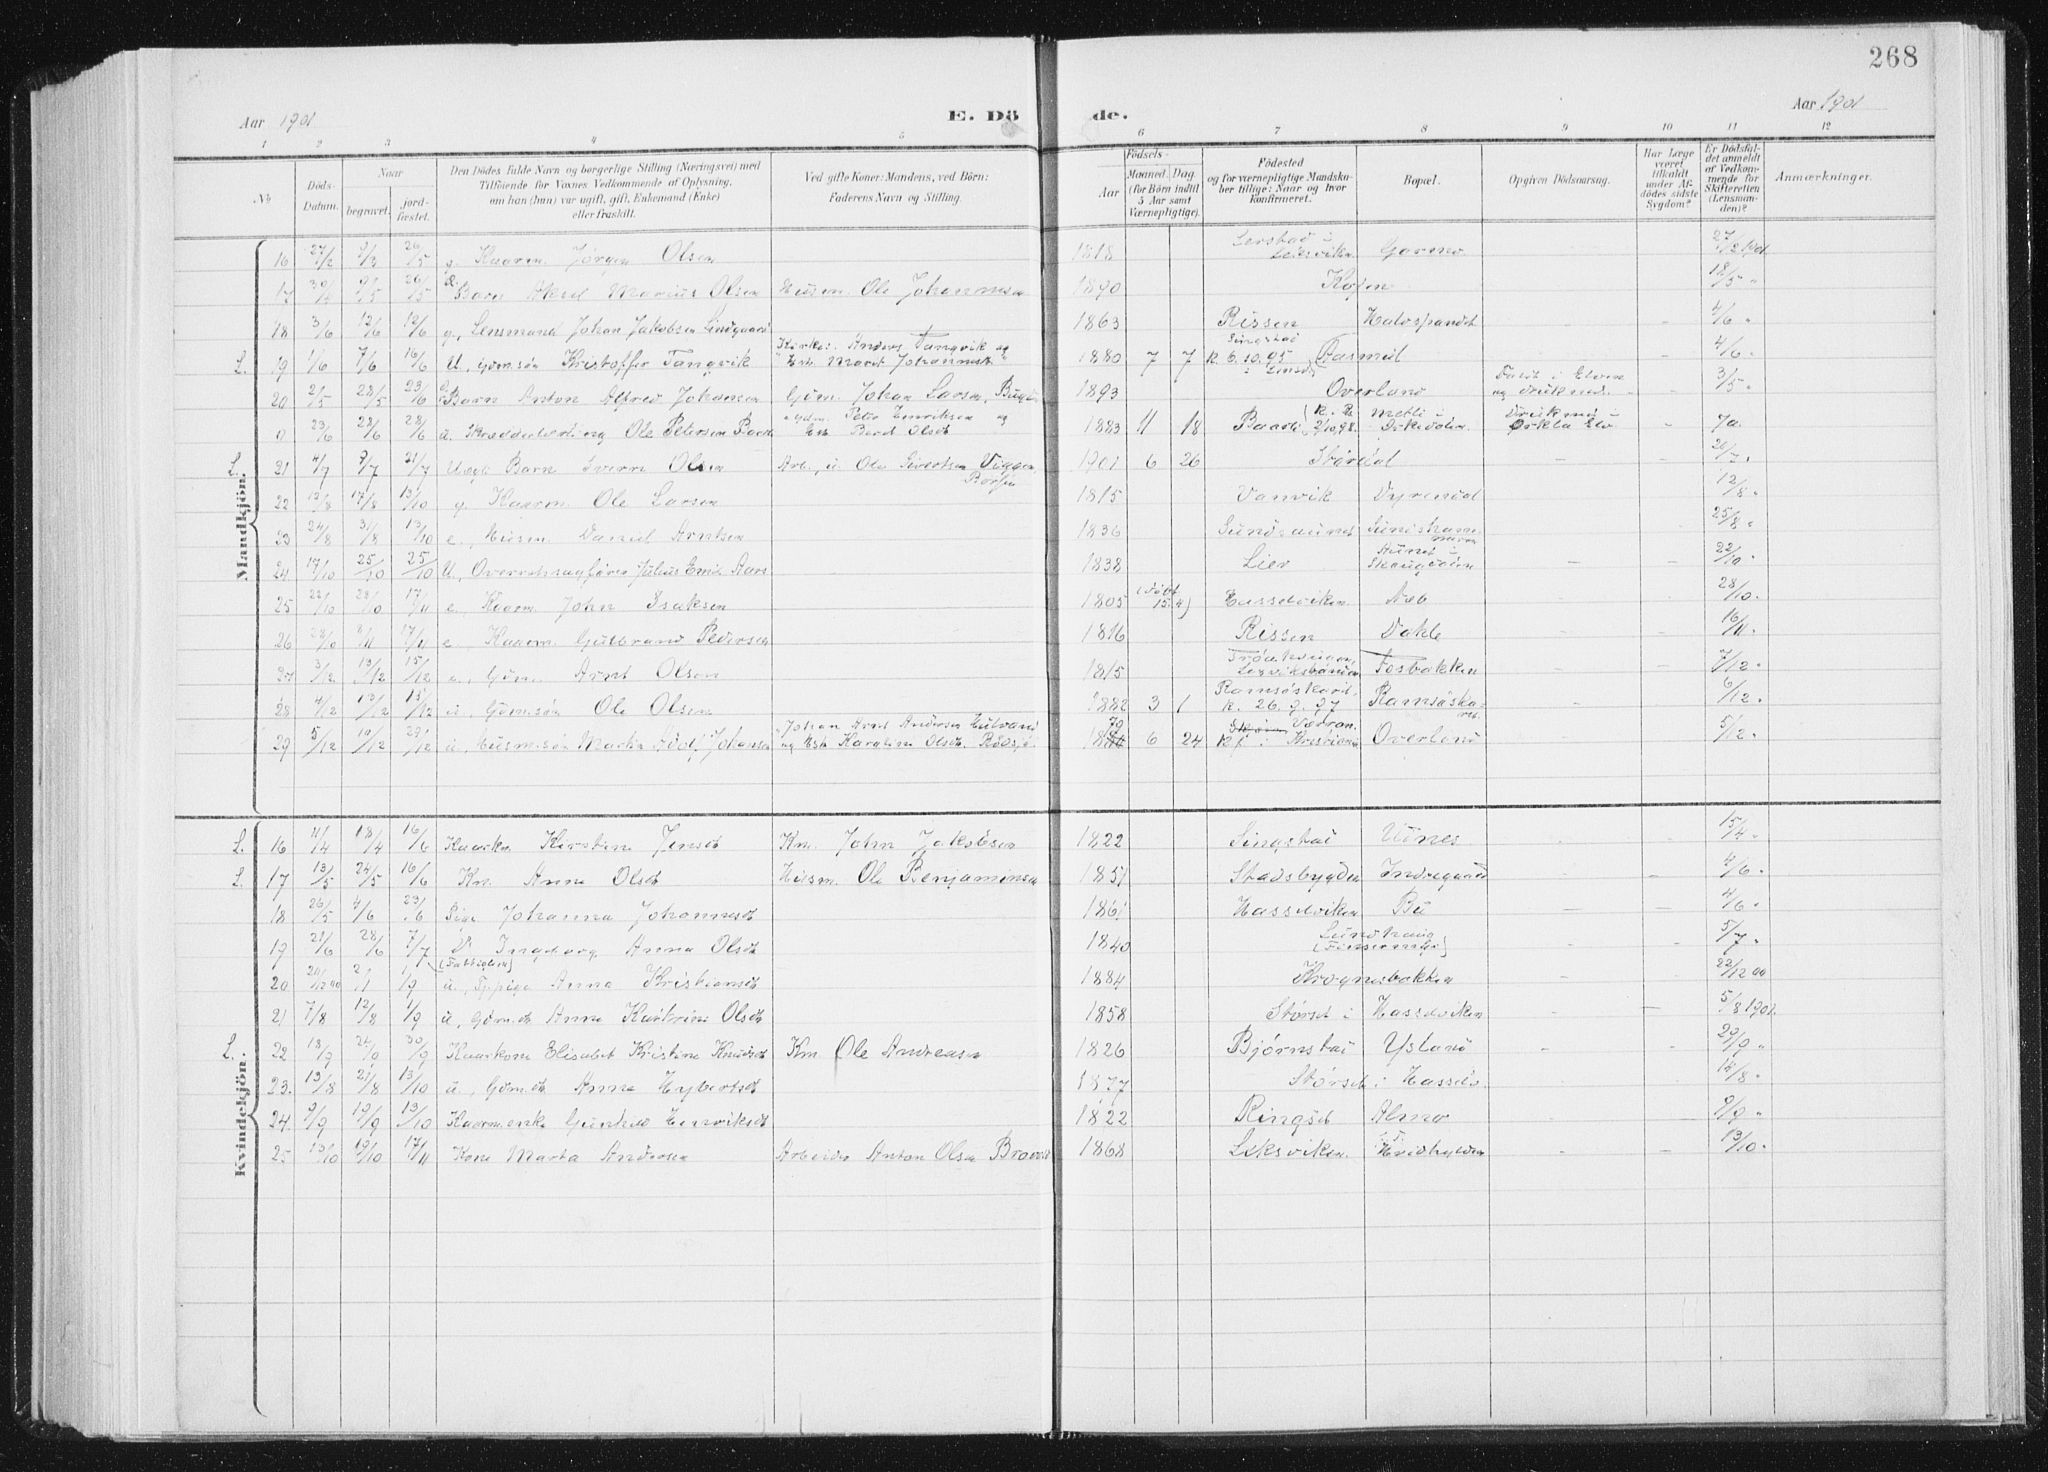 268
Aar 1901 E. Dö de. Aar 1901
1 2 3 4 5 6 7 8 9 10 11 12
No Döds-Datum. Naar begravet. jordfæstet. Den Dödes fulde Navn og borgerlige Stilling (Næringsvei) med Tilföiende for Voxnes Vedkommende af Oplysning, om han (hun) var ugift, gift, Enkemand (Enke) eller fraskilt. Ved gifte Koner: Mandens, ved Börn: Faderens Navn og Stilling. Födsels- Aar Maaned. Dag. (for Börn indtil 5 Aar samt Værnepligtige). Födested og for værnepligtige Mandskaber tillige: Naar og hvor konfirmeret. Bopæl. Opgiven Dödsaarsag. Har Læge været tilkaldt under Afdödes sidste Sygdom? Er Dödsfaldet anmeldt af Vedkommende for Skifteretten (Lensmanden)? Anmærkninger.
Mandkjön.
16 27/2 9/3 26/5 g. Kaarm. Jørgen Olsen 1818 Leksviken 27/2 1901
17 30/4 9/5 26/5 Barn Aksel Marius Olsen Husm. Ole Johannesen 1890 18/5 "
18 3/6 12/6 12/6 g., Lensmand Johan Jakobsen Lindgaard 1863 Rissen 4/6 "
L. 19 1/6 7/6 16/6 U, Gdm.søn Kristoffer Tangvik Anders Tangvik og Marit Johannesdt. 1880 7 7 k. 6.10.95 Fasmul 4/6 "
20 21/5 28/5 23/6 Barn Anton Alfred Johansen Gdm. Johan Larsen, 1893 Overland Elven og druknede. 3/5 "
23/6 28/6 28/6 u. Skrædderlærling Ole Petersen Gdm. Peter Henriksen og Berit Olsdt 1883 11 18 2/10 98. Orkedalen Orkla Elv
L. 21 4/7 9/7 21/7 Uægt. Barn Sverre Olsen Arb., u. Ole Sivertsen Viggen, Børsen 1901 6 26 Størdal 20/7 "
22 12/8 17/8 13/10 g. Kaarm. Ole Larsen 1815 Vanvik Dyrendal 12/8 "
23 24/8 31/8 13/10 e., Husm. Daniel Arntsen 1836 Sundsaunet 25/8 "
24 17/10 25/10 25/10 U., Overretssagfører Julius Emil Aars 1838 Lier Aunet i Skaugdalen 22/10 "
25 22/10 28/10 17/11 e., Kaarm. John Isaksen 1805 (født 15.4) Hasselviken Næb 28/10 "
26 8/11 17/11 e., Kaarm. Gulbrand Pedersen 1816 Rissen Dahle 16/11 "
27 3/12 13/12 15/12 e., Gdm. Arnt Olsen 1815 Fosbakken 7/12 "
28 4/12 13/12 15/12 u., Gdm.søn Ole Olsen 1882 3 1 Ramsøskaret. k. 26.9.97 Ramsøskaret. 6/12 "
29 5/12 19/12 29/12 u., Husm.søn Martin Adolf Johansen Johan Arnt Andersen og Karoline Olsdt. 18 79 6 24 Kristiania Overland 5/12 "
Kvindekjön.
L. 16 4/4 18/4 16/6 Kaarkn Kirstine Jensdt Km. John Jakobsen 1822 Singstad Utnes 15/4 "
L. 17 13/5 24/5 16/6 Kn. Anne Olsdt Husm. Ole Benjaminsen 1851 Stadsbygden Indregaard 4/6 "
18 26/5 4/6 23/6 Pige Johanna Johannesdt 1861 Hasselviken Bu 4/6 "
19 21/6 28/6 7/7 Ingeborg Anna Olsdt 1840 Sundhaug 5/7 "
20 20/12 00 2/1 1/9 u., Tj.pige Anna Kristiansdt 1884 Krognesbakken 22/12 00
21 7/8 12/8 1/9 u., Gdm.dt Anne Katrine Olsdt 1858 Størset i Hasselviken 5/8 1901
L. 22 18/9 24/9 30/9 Kaarkone Elisabet Kristine Knudsdt Km. Ole Andreasen 1826 Bjørnstad Ysland 29/9 "
23. 13/8 21/8 13/10 u., Gdm.dt Anna Hybertsdt 1877 Størset i Hasselv. 14/8 "
24. 9/9 19/9 13/10 Kaarm.enke Gunhild Henriksdt 1822 Ringset Almo 9/9 "
25 13/10 19/10 17/11 Kone Marta Andersen Arbeider Anton Olsen 1868 Leksviken. 13/10 "